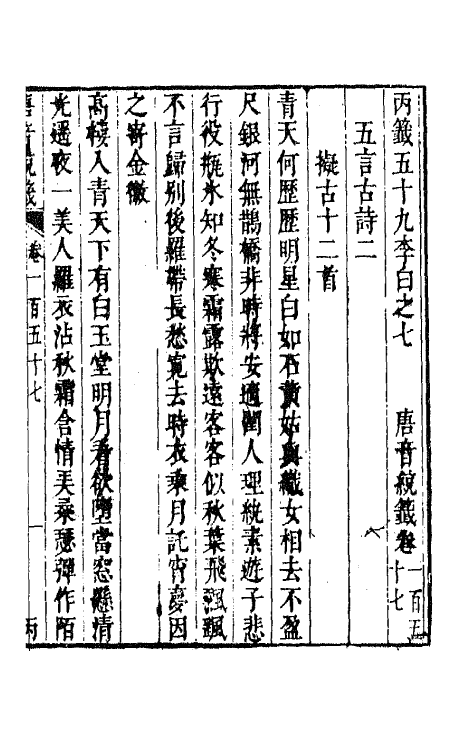 丙籖五十九李白之七　唐音統籖卷一百五十七
五言古詩二
擬古十二首
青天何歷歷明星白如石黄姑與織女相去不盈
尺銀河無鵲橋非時將安適閨人理紈素遊子悲
行役瓶氷知冬寒霜露欺遠客客似秋葉飛飄飖
不言歸别後羅帶長愁寛去時衣乘月託宵夢因
之寄金徽
髙樓入青天下有白玉堂明月看欲墮當窓懸清
光遥夜一美人羅衣沾秋霜含情弄柔瑟彈作陌
唐音統籖 卷一百五十七 一 丙